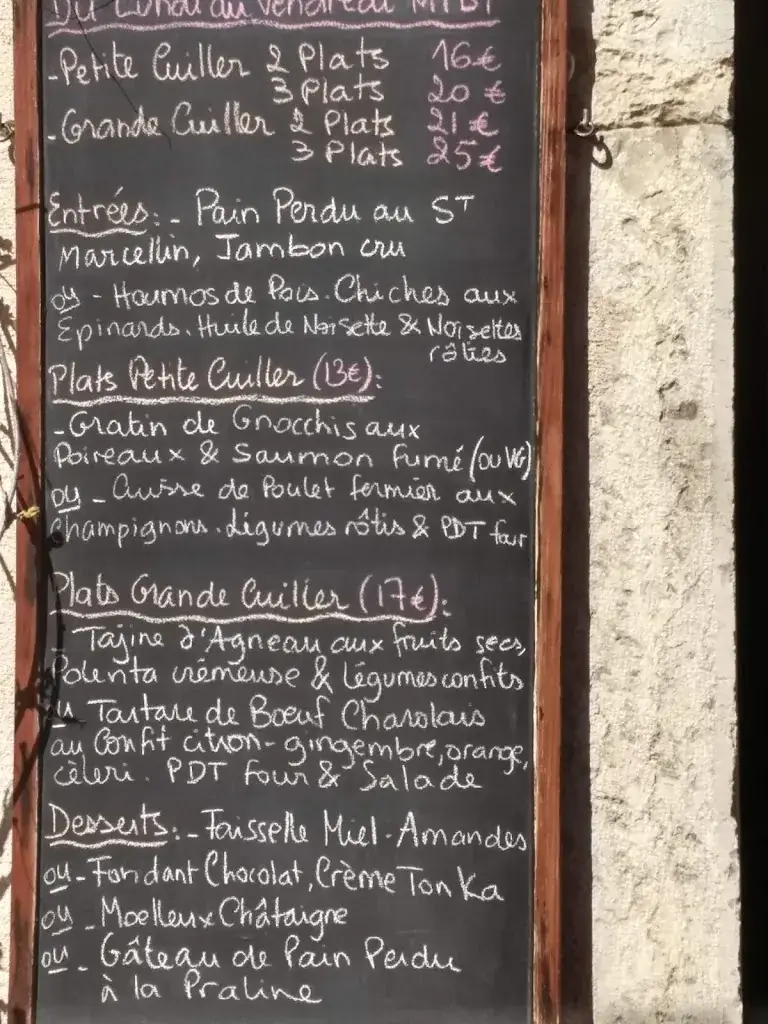 Du Lundi au Vendredi MIDI
-Petite Cuiller 2 Plats 16€
3 Plats 20 €
-Grande Cuiller 2 Plats 21 €
3 Plats 25€
Entrées: - Pain Perdu au ST
Marcellin, Jambon cru
ou - Houmos de Pois.Chiches aux
Epinards. Huile de Noisette & Noisettes
râties
Plats Petite Cuiller (13€):
-Gratin de Gnocchis aux
Poireaux & Saumon fumé (ou VG)
ou - Cuisse de Poulet fermier aux
champignons. Légumes rôtis & PDT four
Plats Grande Cuiller (17€):
- Tajine d'Agneau aux fruits secs,
Polenta crémeuse & Légumes confits
ou Tartare de Bœuf Charolais
au Confit citron-gingembre, orange,
cèleri. PDT four & Salade
Desserts: - Faisselle Miel-Amandes
ou - Fondant Chocolat, Crème Tonka
ou - Moelleux Châtaigne
ou - Gâteau de Pain Perdu
à la Praline